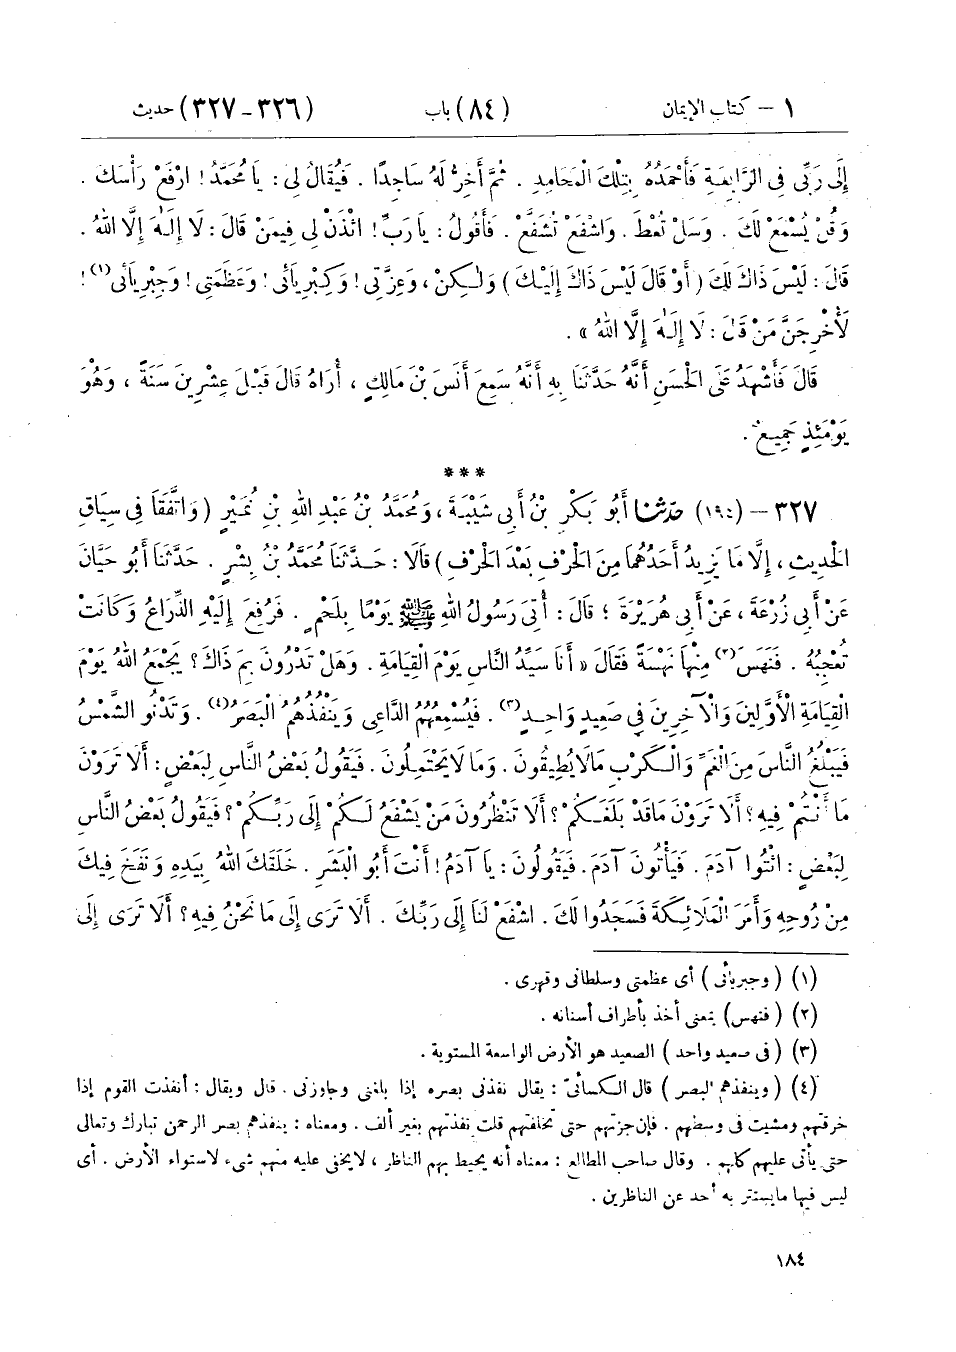 ١ – كتاب الإيمان (٨٤) باب (٣٢٦ - ٣٢٧) حديث
إِلَى رَبِّي فِي الرَّابِعَةِ فَأَحْمَدُهُ بِتِلْكَ الْمَحَامِدِ . ثُمَّ أَخِرُّ لَهُ سَاجِدًا . فَيُقَالُ لِي : يَا مُحَمَّدُ ! ارْفَعْ رَأْسَكَ .
وَقُلْ يُسْمَعْ لَكَ . وَسَلْ تُعْطَ . وَاشْفَعْ تُشَفَّعْ . فَأَقُولُ : يَا رَبِّ ! ائْذَنْ لِي فِيمَنْ قَالَ : لَا إِلَهَ إِلَّا اللهُ .
قَالَ : لَيْسَ ذَاكَ لَكَ ( أَوْ قَالَ لَيْسَ ذَاكَ إِلَيْكَ ) وَلَكِنْ ، وَعِزَّتِي ! وَكِبْرِيَائِي ! وَعَظَمَتِي ! وَجِبْرِيَائِي (١) !
لَأُخْرِجَنَّ مَنْ قَالَ : لَا إِلَهَ إِلَّا اللهُ » .
قَالَ فَأَشْهَدُ عَلَى الْحَسَنِ أَنَّهُ حَدَّثَنَا بِهِ أَنَّهُ سَمِعَ أَنَسَ بْنَ مَالِكٍ ، أُرَاهُ قَالَ قَبْلَ عِشْرِينَ سَنَةً ، وَهُوَ
يَوْمَئِذٍ جَمِيعٌ .
***
٣٢٧ – (١٩٤) حدثنا أَبُو بَكْرِ بْنُ أَبِي شَيْبَةَ ، وَمُحَمَّدُ بْنُ عَبْدِ اللهِ بْنِ نُمَيْرٍ ( وَاتَّفَقَا فِي سِيَاقِ
الْحَدِيثِ ، إِلَّا مَا يَزِيدُ أَحَدُهُمَا مِنَ الْحَرْفِ بَعْدَ الْحَرْفِ ) قَالَا : حَدَّثَنَا مُحَمَّدُ بْنُ بِشْرٍ . حَدَّثَنَا أَبُو حَيَّانَ
عَنْ أَبِي زُرْعَةَ ، عَنْ أَبِي هُرَيْرَةَ ؛ قَالَ : أُتِيَ رَسُولُ اللهِ ﷺ يَوْمًا بِلَحْمٍ . فَرُفِعَ إِلَيْهِ الذِّرَاعُ وَكَانَتْ
تُعْجِبُهُ . فَنَهَسَ (٢) مِنْهَا نَهْسَةً فَقَالَ « أَنَا سَيِّدُ النَّاسِ يَوْمَ الْقِيَامَةِ . وَهَلْ تَدْرُونَ بِمَ ذَاكَ ؟ يَجْمَعُ اللهُ يَوْمَ
الْقِيَامَةِ الْأَوَّلِينَ وَالْآخِرِينَ فِي صَعِيدٍ وَاحِدٍ (٣) . فَيُسْمِعُهُمُ الدَّاعِي وَيَنْفُذُهُمُ الْبَصَرُ (٤) . وَتَدْنُو الشَّمْسُ
فَيَبْلُغُ النَّاسَ مِنَ الْغَمِّ وَالْكَرْبِ مَالَا يُطِيقُونَ . وَمَا لَا يَحْتَمِلُونَ . فَيَقُولُ بَعْضُ النَّاسِ لِبَعْضٍ : أَلَا تَرَوْنَ
مَا أَنْتُمْ فِيهِ ؟ أَلَا تَرَوْنَ مَاقَدْ بَلَغَكُمْ ؟ أَلَا تَنْظُرُونَ مَنْ يَشْفَعُ لَكُمْ إِلَى رَبِّكُمْ ؟ فَيَقُولُ بَعْضُ النَّاسِ
لِبَعْضٍ : ائْتُوا آدَمَ . فَيَأْتُونَ آدَمَ . فَيَقُولُونَ : يَا آدَمُ ! أَنْتَ أَبُو الْبَشَرِ . خَلَقَكَ اللهُ بِيَدِهِ وَنَفَخَ فِيكَ
مِنْ رُوحِهِ وَأَمَرَ الْمَلَائِكَةَ فَسَجَدُوا لَكَ . اشْفَعْ لَنَا إِلَى رَبِّكَ . أَلَا تَرَى إِلَى مَا نَحْنُ فِيهِ ؟ أَلَا تَرَى إِلَى
(١) ( وجبريائى ) أى عظمتى وسلطانى وقهرى .
(٢) ( فنهس ) بمعنى أخذ بأطراف أسنانه .
(٣) ( فى صعيد واحد ) الصعيد هو الأرض الواسعة المستوية .
(٤) ( وينفذهم البصر ) قال الكسائىّ : يقال نفذنى بصره إذا بلغنى وجاوزنى . قال ويقال : أنفذت القوم إذا
خرقتهم ومشيت فى وسطهم . فإن جزتهم حتى تخلفتهم قلت نفذتهم بغير ألف . ومعناه : ينفذهم بصر الرحمن تبارك وتعالى
حتى يأتى عليهم كلهم . وقال صاحب المطالع : معناه أنه يحيط بهم الناظر ، لا يخفى عليه منهم شىء لاستواء الأرض . أى
ليس فيها ما يستتر به أحد عن الناظرين .
١٨٤